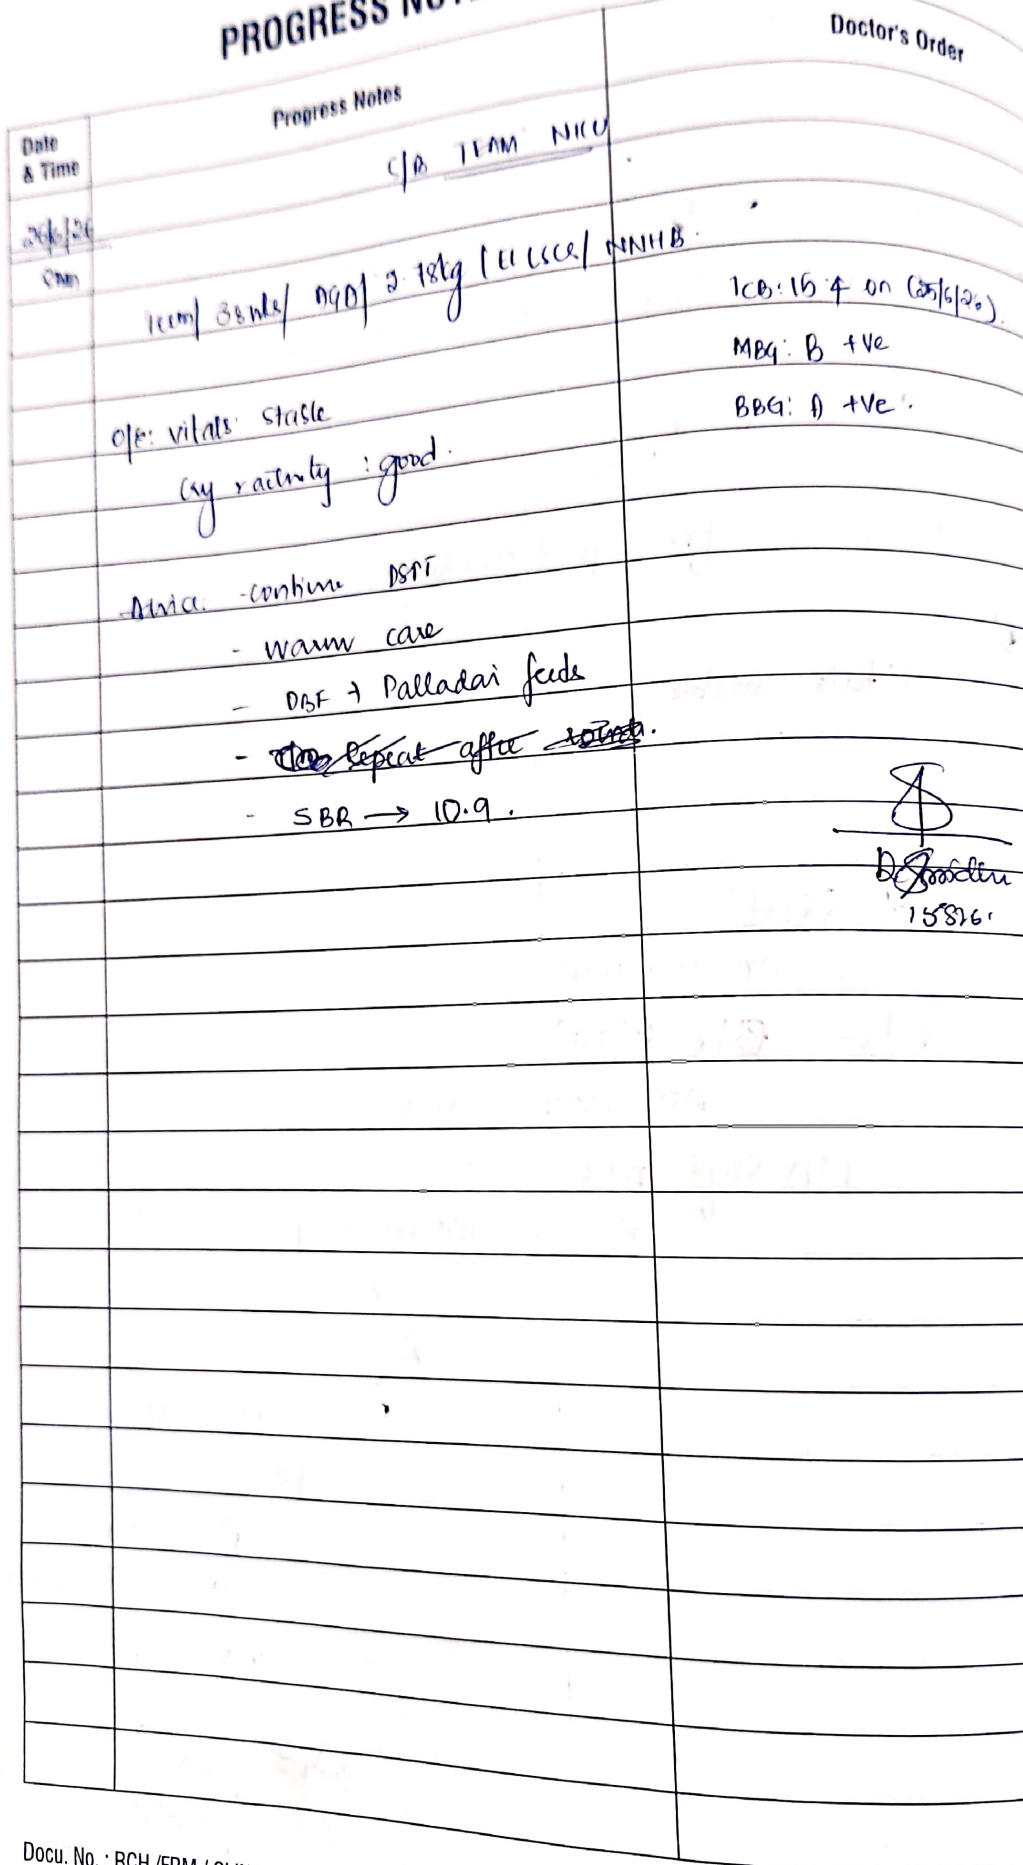 PROGRESS NO
Doctor's Order
Progress Notes
Date
& Time
C/B TEAM NICU
26/6/26
38wks/ AGA/ 2.78kg / El LSCS/ NNHB.
TCB: 15.4 on (25/6/26)
MBG: B +ve
BBG: A +ve.
O/E: vitals stable
Cry & activity : good.
Advice. - continue DSPT
- warm care
- DBF + Palladai feeds
- repeat after
- SBR → 10.9.
15826.
Docu. No. : RCH /FRM /